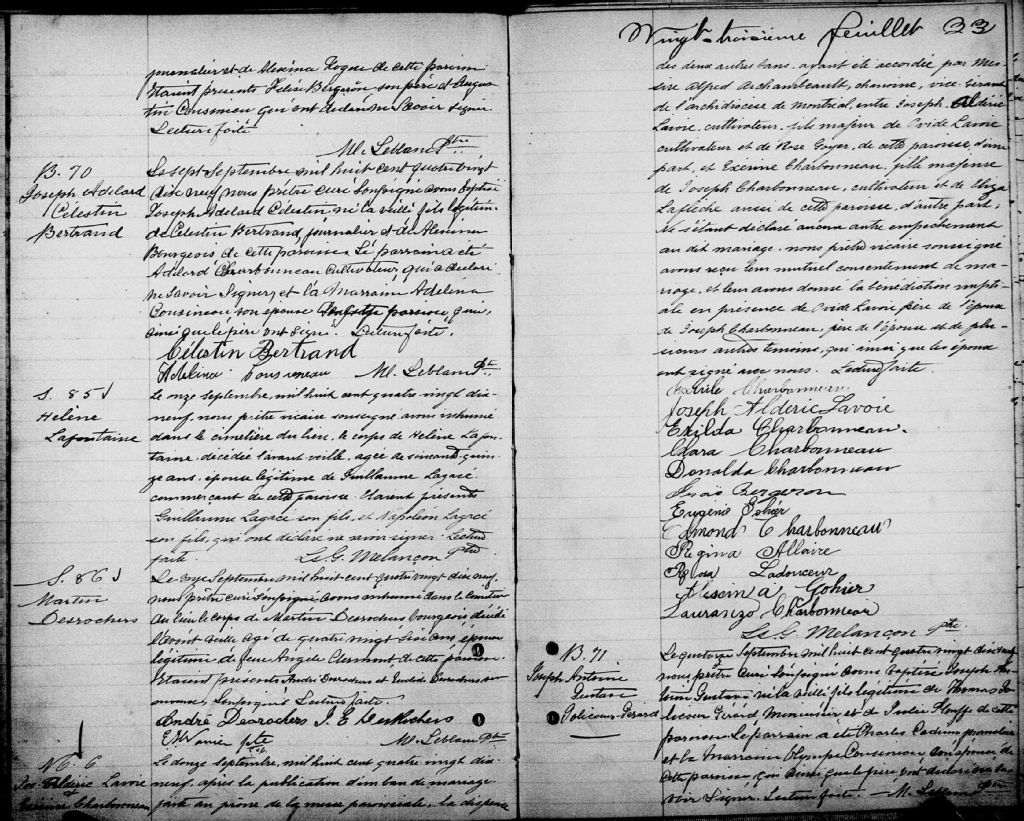 journalier et de Alexina Roque de cette paroisse
Etaient présents Félix Bergeron son père et Augus
tin Cousineau qui ont déclaré ne savoir signer
Lecture faite
M. Leblanc Ptre
B. 70
Joseph Adélard
Célestin
Bertrand
Le sept Septembre mil huit cent quatre vingt
dix neuf, nous prêtre curé soussigné avons baptisé
Joseph Adélard Célestin né la veille fils légitime
de Célestin Bertrand journalier et de Alexina
Bourgeois de cette paroisse. Le parrain a été
Adélard Charbonneau Cultivateur, qui a déclaré
ne savoir signer, et la Marraine Adelina
Cousineau son épouse de cette paroisse, qui,
ainsi que le père ont signé. Lecture faite.
Célestin Bertrand
Adelina Cousineau M. Leblanc Ptre
S. 85
Hélène
Lafontaine
Le onze septembre, mil huit cent quatre vingt dix-
neuf, nous prêtre vicaire soussigné avons inhumé
dans le cimetière du lieu, le corps de Hélène Lafon-
taine, décédée l'avant veille, agée de soixante quin-
ze ans, épouse légitime de Guillaume Lagacé
commerçant de cette paroisse. Etaient présents
Guillaume Lagacé son fils, et Napoléon Lagacé
son fils, qui ont déclaré ne savoir signer. Lecture
faite. Ls. G. Melançon Ptre
S. 86
Martin
Desrochers
Le onze Septembre mil huit cent quatre vingt dix neuf,
nous prêtre curé soussigné avons inhumé dans le cimetière
du lieu le corps de Martin Desrochers bourgeois décédé
l'avant veille agé de quatre vingt six ans époux
légitime de feue Angèle Clermont de cette paroisse.
Etaient présents André Desrochers et
soussignés Lecture faite.
André Desrochers J. E. Desrochers
ptre M. Leblanc Ptre
M. 6
Jos. Aldéric Lavoie
et
Exérine Charbonneau
Le douze septembre, mil huit cent quatre vingt dix
neuf, après la publication d'un ban de mariage
faite au prône de la messe paroissiale, la dispense
Vingt-troisième feuillet 23
des deux autres bans, ayant été accordée par Mes-
sire Alfred Archambeault, chanoine, vice-gérant
de l'archidiocèse de Montréal, entre Joseph Aldéric
Lavoie, cultivateur, fils majeur de Ovide Lavoie
cultivateur et de Rose Goyer, de cette paroisse, d'une
part, et Exérine Charbonneau, fille majeure
de Joseph Charbonneau, cultivateur et de Eliza
Laflèche aussi de cette paroisse, d'autre part;
Ne s'étant déclaré aucun autre empêchement
au dit mariage, nous prêtre vicaire soussigné
avons reçu leur mutuel consentement de ma-
riage, et leur avons donné la bénédiction nupti-
ale en présence de Ovide Lavoie père de l'époux
de Joseph Charbonneau, père de l'épouse et de plu-
sieurs autres témoins, qui ainsi que les époux
ont signé avec nous. Lecture faite.
Charbonneau
Joseph Aldéric Lavoie
Exilda Charbonneau.
Clara Charbonneau
Donalda Charbonneau
Bergeron
Eugénie Gohier
Edmond Charbonneau
Régina Allaire
Rosa Ladouceur
Alexina Gohier
Lauranzo Charbonneau
Ls. G. Melançon Ptre
B. 71.
Joseph Antoine
Gustave
Jolicoeur-Gérard
Le quatorze Septembre mil huit cent quatre vingt dix neuf
nous, prêtre curé soussigné avons baptisé Joseph An-
toine Gustave né la veille fils légitime de Thomas Jo-
licoeur Gérard Menuisier et de Plouffe de cette
paroisse Le parrain a été Charles Cadieux journalier
et la Marraine Olympe Cousineau son épouse de
cette paroisse, qui ainsi que le père ont déclaré ne sa-
voir signer. Lecture faite. M. Leblanc Ptre